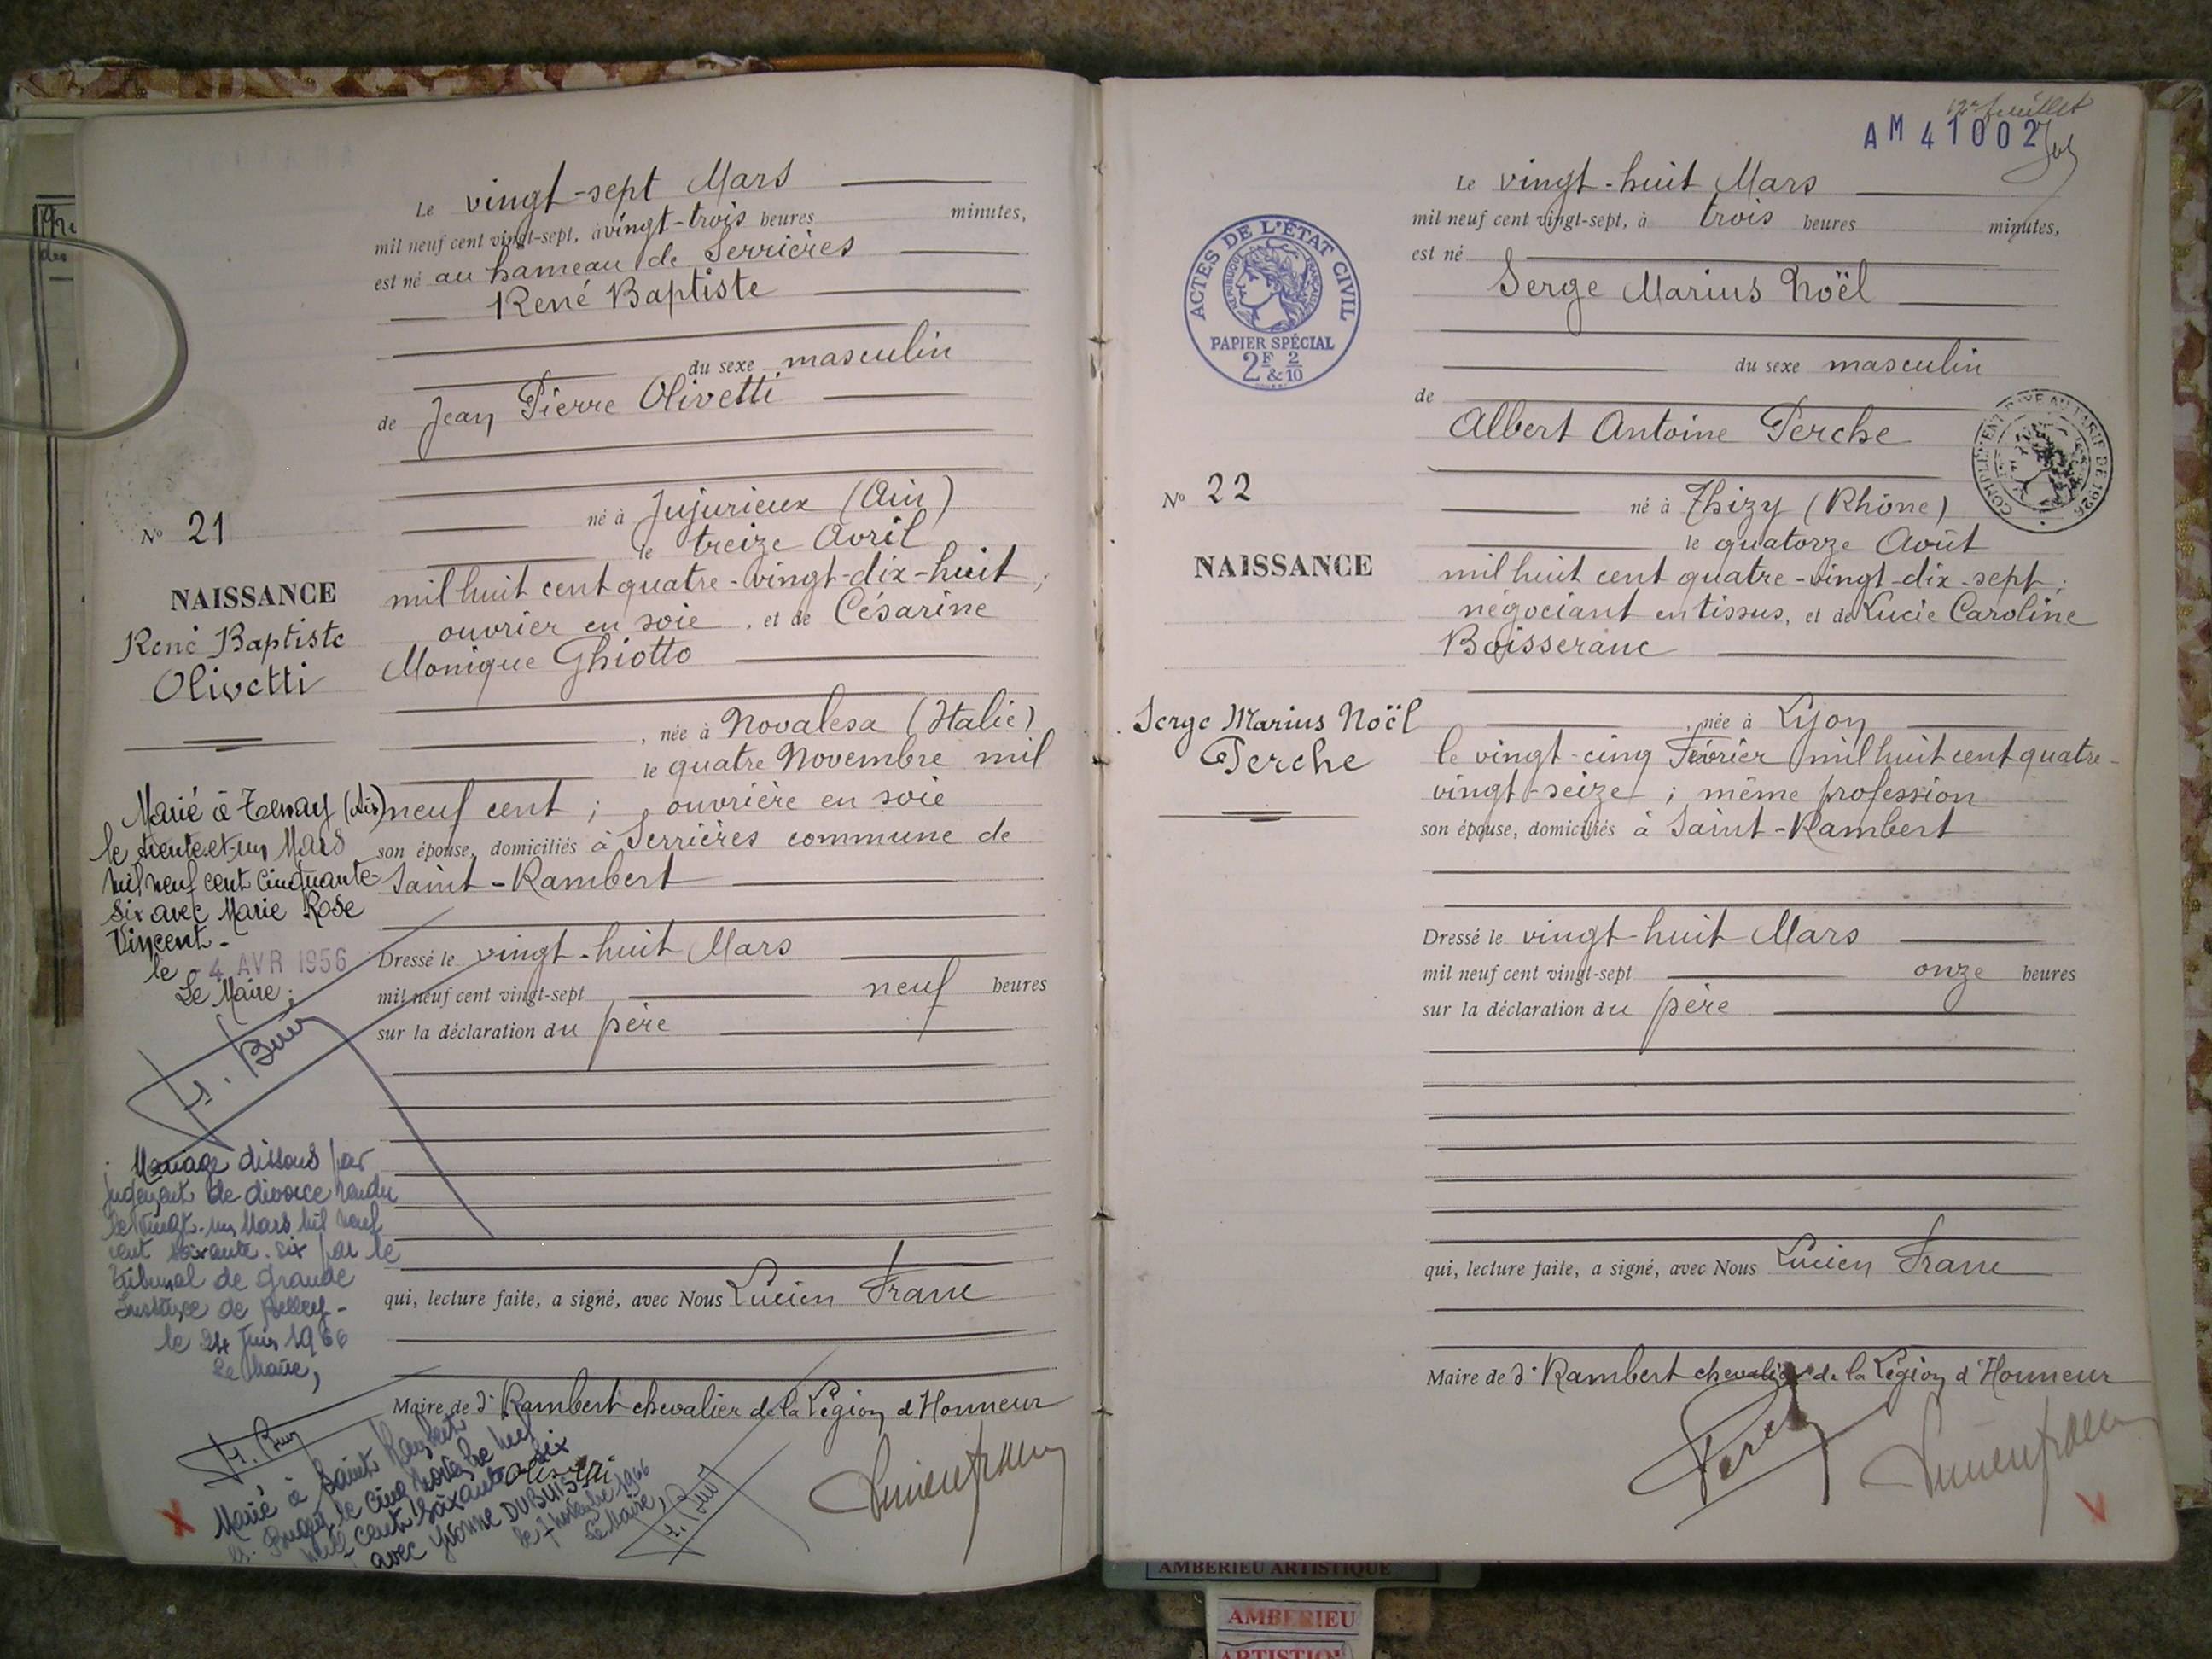 Le vingt-sept Mars
mil neuf cent vingt-sept, à vingt-trois heures minutes,
est né au hameau de Serrières
René Baptiste
du sexe masculin
de Jean Pierre Olivetti
né à Jujurieux (Ain)
le treize Avril
mil huit cent quatre-vingt-dix-huit ;
ouvrier en soie, et de Césarine
Monique Ghiotto
, née à Novalesa (Italie)
le quatre Novembre mil
neuf cent ; ouvrière en soie
son épouse, domiciliés à Serrières commune de
Saint-Rambert
Dressé le vingt-huit Mars
mil neuf cent vingt-sept neuf heures
sur la déclaration du père
qui, lecture faite, a signé, avec Nous Lucien Franc
Maire de St Rambert chevalier de la Légion d'Honneur
No 21
NAISSANCE
René Baptiste
Olivetti
Marié à (Ain)
le trente-et-un Mars
mil neuf cent cinquante-
six avec Marie Rose
Vincent-
le -4 AVR 1956
Le Maire ;
Mariage dissous par
jugement de divorce rendu
le vingt-un Mars mil neuf
cent soixante-six par le
tribunal de grande
Instance de Belley-
le 24 Juin 1966
Le Maire,
Marié à Saint Rambert
en Bugey le cinq novembre neuf
mil cent soixante six
avec Yvonne DUBUISSON
le 7 novembre 1966
Le Maire,
Olivetti
12e feuillet
AM 41002
ACTES DE L'ÉTAT CIVIL
RÉPUBLIQUE FRANÇAISE
PAPIER SPÉCIAL
2F & 2/10
Le vingt-huit Mars
mil neuf cent vingt-sept, à trois heures minutes,
est né
Serge Marius Noël
du sexe masculin
de
Albert Antoine Perche
COMPLÉMENT PAYÉ AU TARIF DE 1926
né à Thizy (Rhône)
le quatorze Août
mil huit cent quatre-vingt-dix-sept ;
négociant en tissus, et de Lucie Caroline
Boisseranc
, née à Lyon
le vingt-cinq Février mil huit cent quatre-
vingt-seize ; même profession
son épouse, domiciliés à Saint-Rambert
Dressé le vingt-huit Mars
mil neuf cent vingt-sept onze heures
sur la déclaration du père
qui, lecture faite, a signé, avec Nous Lucien Franc
Maire de St Rambert chevalier de la Légion d'Honneur
No 22
NAISSANCE
Serge Marius Noël
Perche
AMBERIEU ARTISTIQUE
AMBERIEU
ARTISTIQUE